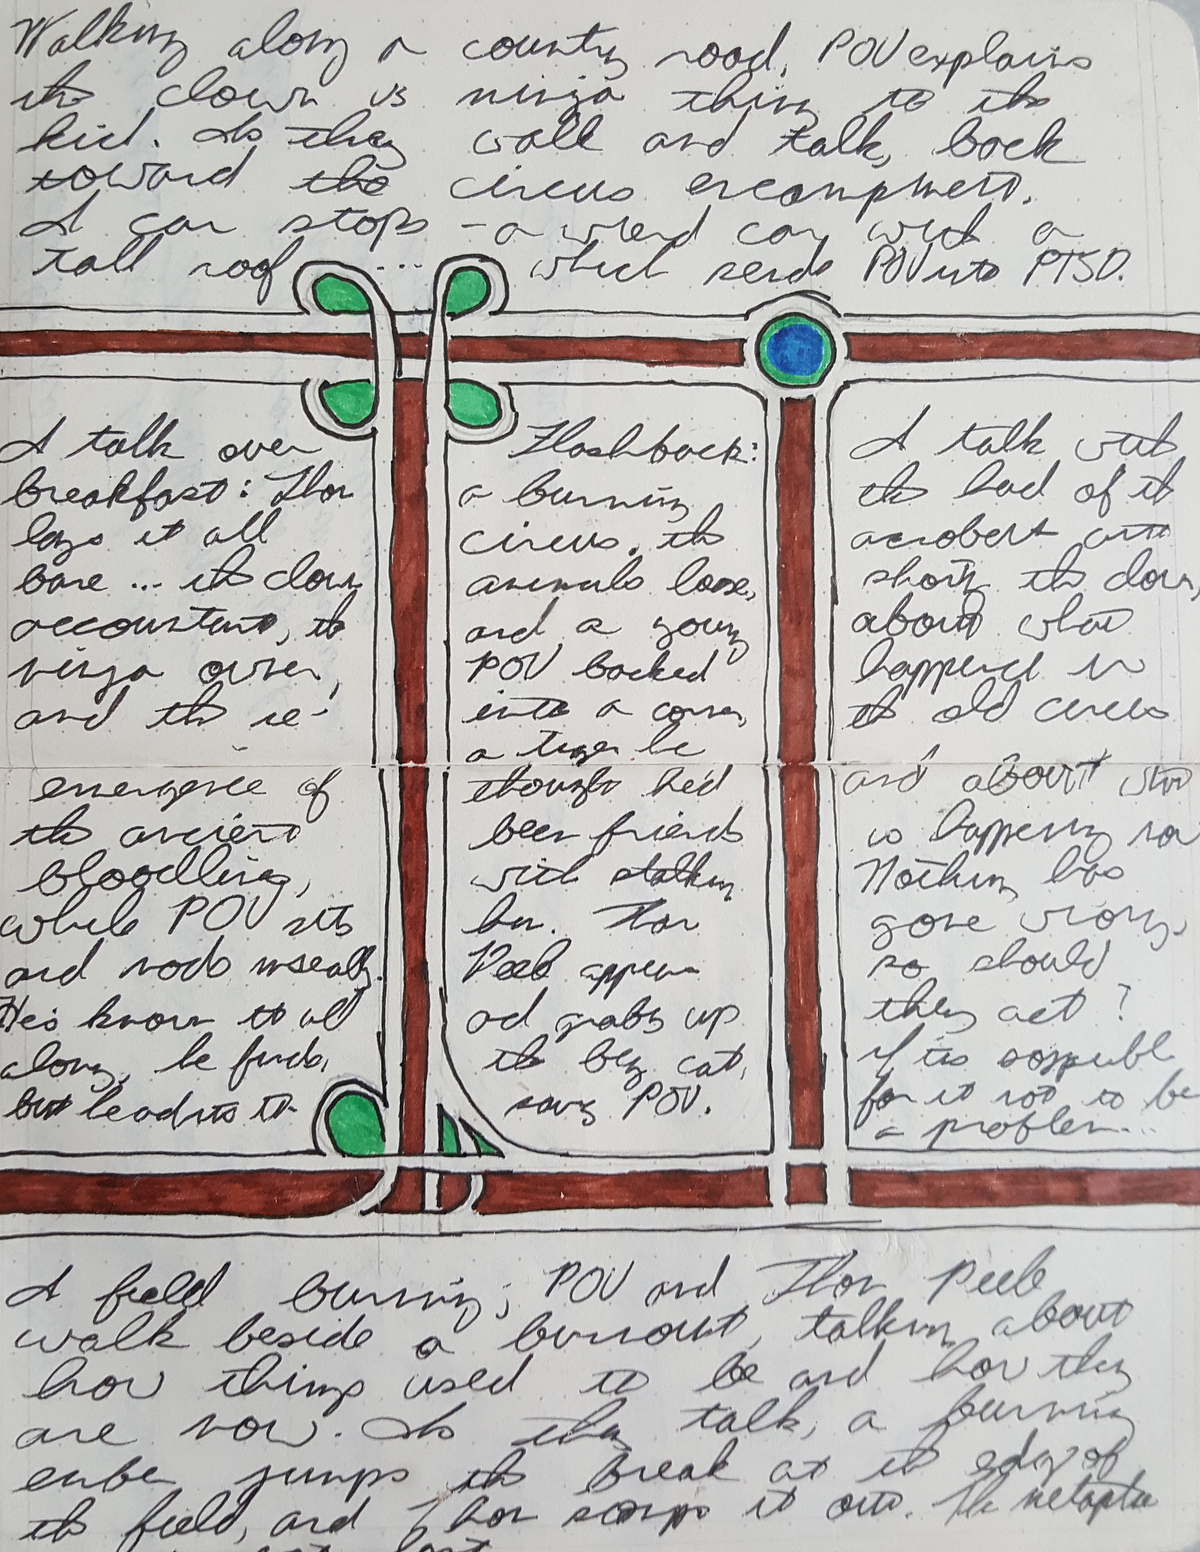 Walking along a country road, POV explains
the clown vs ninja thing to the
kid. As they walk and talk, back
toward the circus encampment.
A car stops - a weird car with a
tall roof .... which sends POV into PTSD.
A talk over
breakfast: Thor
lays it all
bare ... the clown
accountant, the
ninja owner,
and the re-
emergence of
the ancient
bloodline,
while POV sits
and nods
He's known it all
along, he finds,
but
Flashback:
a burning
circus, the
animals loose,
and a young
POV backed
into a corner,
a tiger he
thought he'd
been friends
with stalking
him. Thor
Peeb appears
and grabs up
the big cat,
saving POV.
A talk with
the head of the
acrobat
the clown,
about what
happened in
the old circus
and about what
is happening now
Nothing has
gone wrong,
so should
they act?
If its possible
for it not to be
a problem...
A field burning; POV and Thor Peeb
walk beside a burnout, talking about
how things used to be and how they
are now. As they talk, a burning
ember jumps the break at the edge of
the field, and Thor stomps it out. The metaphor
not lost